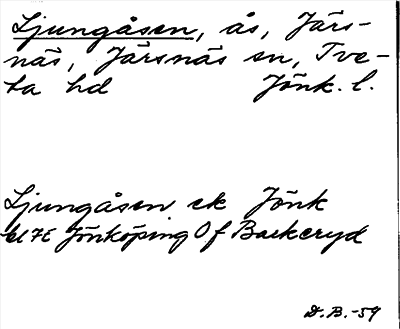 Ljungåsen, ås, Järs-
näs, Järsnäs sn, Tve-
ta hd Jönk. l.
Ljungåsen ek Jönk
bl 7E Jönköping Of Backeryd
D.B.-59